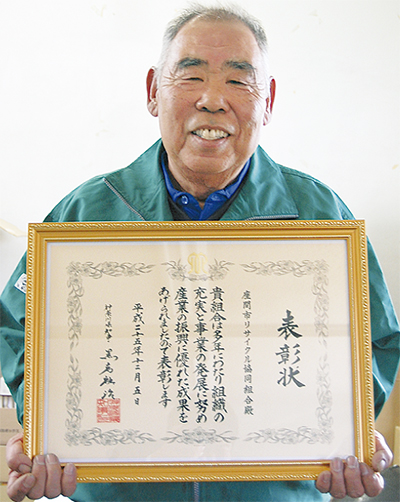 表彰状
座間市リサイクル協同組合殿
貴組合は多年にわたり組織の
充実と事業の発展に努め
産業の振興に優れた成果を
あげられましたので表彰します
平成二十五年十二月五日
神奈川県知事 黒岩祐治